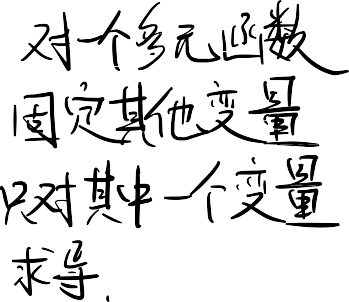 对一个多元函数
固定其他变量
只对其中一个变量
求导.